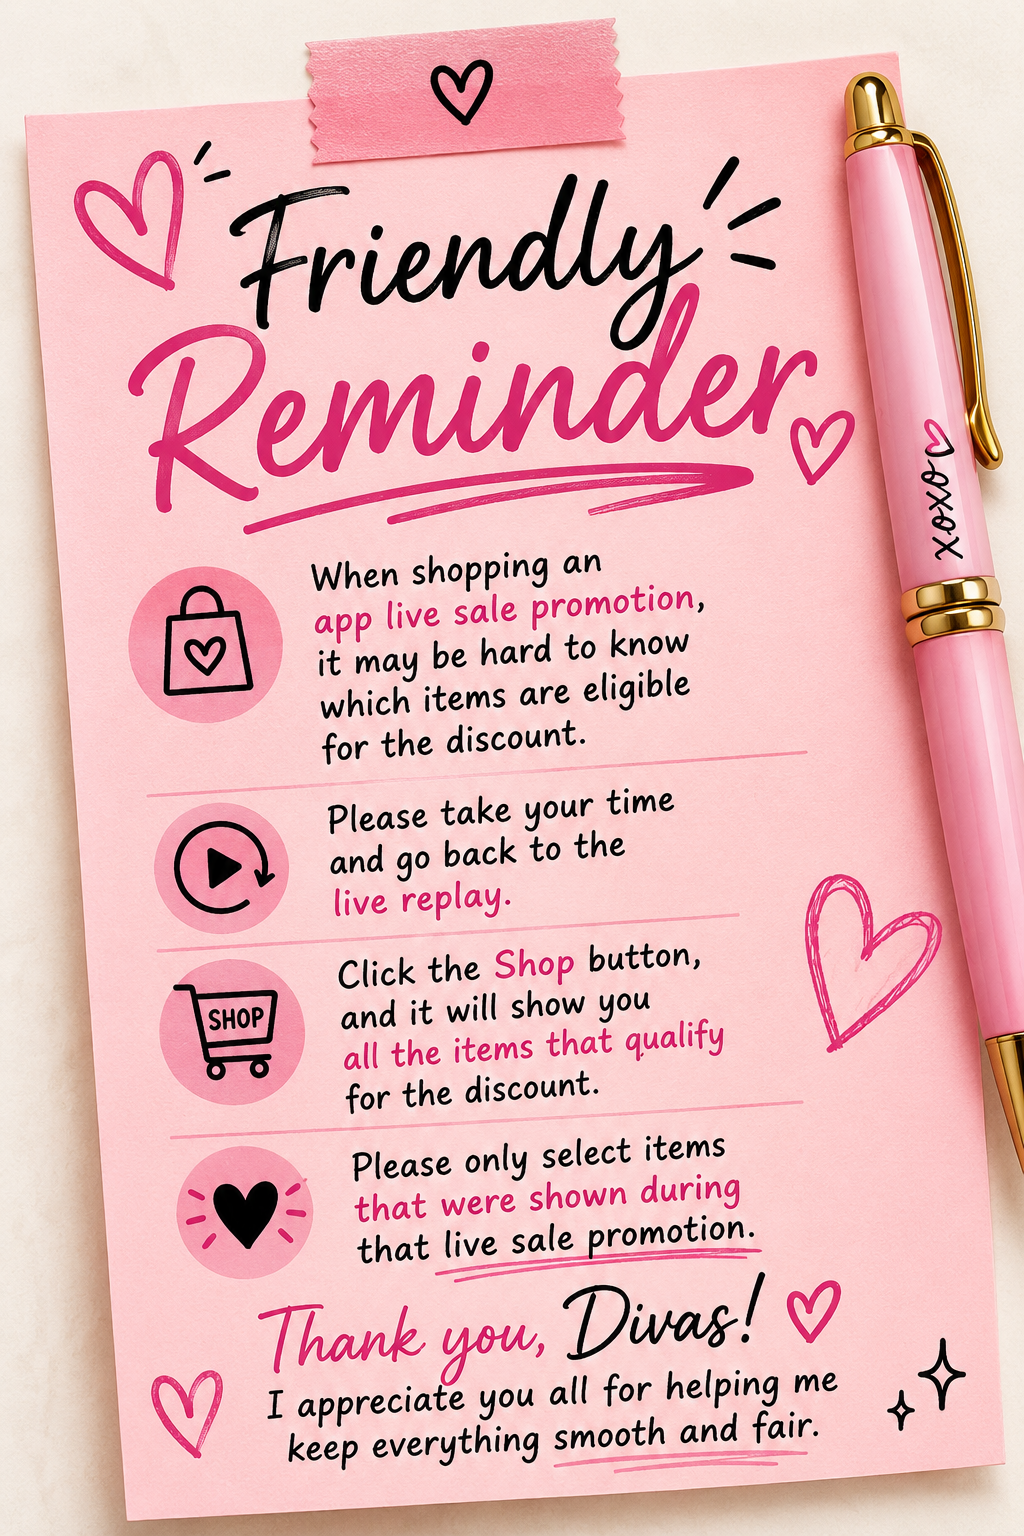 Friendly
Reminder
xoxo
When shopping an
app live sale promotion,
it may be hard to know
which items are eligible
for the discount.
Please take your time
and go back to the
live replay.
SHOP
Click the Shop button,
and it will show you
all the items that qualify
for the discount.
Please only select items
that were shown during
that live sale promotion.
Thank you, Divas!
I appreciate you all for helping me
keep everything smooth and fair.